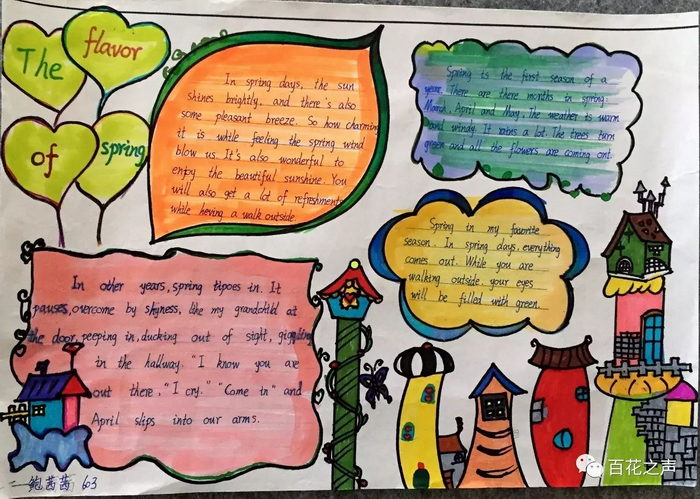 The
flavor
of
spring
In spring days, the sun
shines brightly, and there's also
some pleasant breeze. So how charming
it is while feeling the spring wind
blow us. It's also wonderful to
enjoy the beautiful sunshine. You
will also get a lot of refreshments
while heving a walk outside.
Spring is the first season of a
year. There are there months in spring:
March, April and May. The weather is warm
and windy. It rains a lot. The trees turn
green and all the flowers are coming out.
Spring in my favorite
season. In spring days. everything
comes out. While you are
walking outside your eyes
will be filled with green.
In other years, spring tipoes in. It
pauses, overcome by shyness, like my grandchild at
the door, peeping in, ducking out of sight, giggling
in the hallway. "I know you are
out there, "I cry." "Come in" and
April slips into our arms.
鲍茜茜 603
百花之声